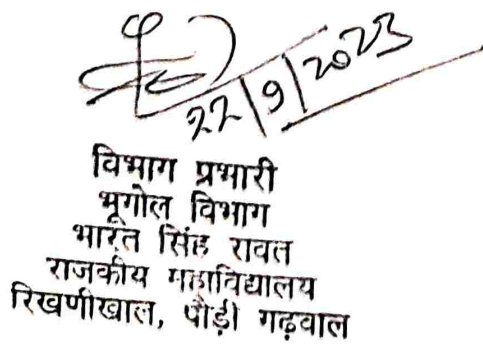 22/9/2023
विभाग प्रभारी
भूगोल विभाग
भारत सिंह रावत
राजकीय महाविद्यालय
रिखणीखाल, पौड़ी गढ़वाल